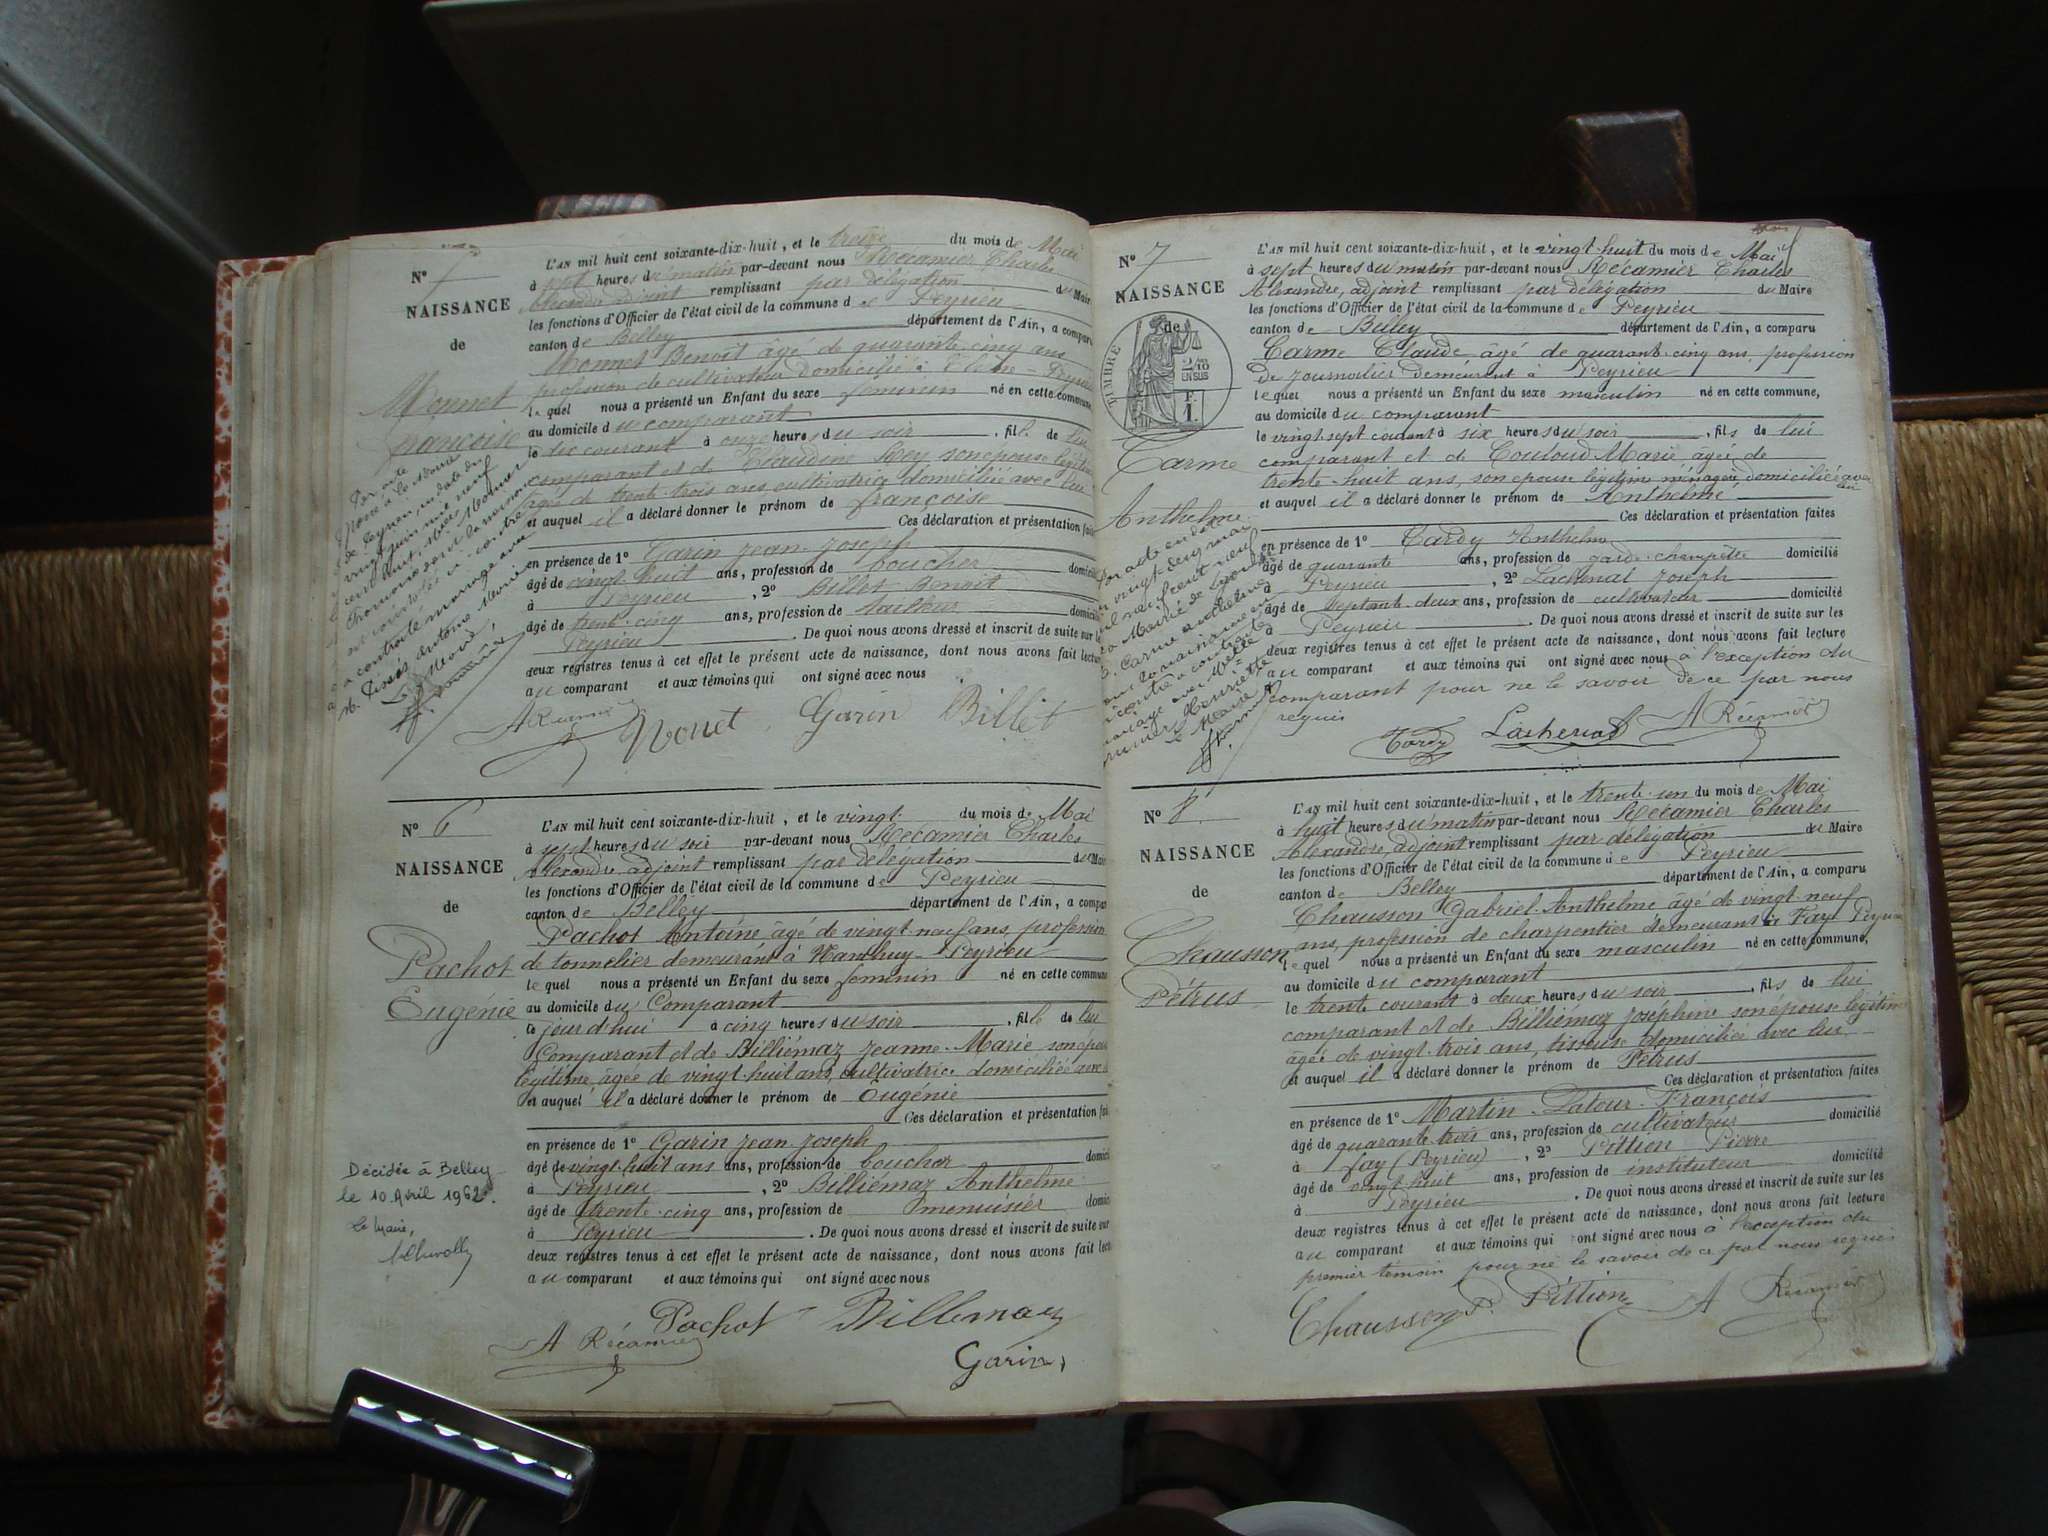 L'AN mil huit cent soixante-dix-huit, et le treize du mois de Mai
N°
à sept heures du matin par-devant nous Récamier Charles
Alexandre adjoint remplissant par délégation du Maire
NAISSANCE
les fonctions d'Officier de l'état civil de la commune de Peyrieu
de
canton de Belley département de l'Ain, a comparu
Monnet Benoît âgé de quarante cinq ans
profession de cultivateur domicilié à Peyrieu
Monnet
le quel nous a présenté un Enfant du sexe féminin né en cette commune,
Françoise
au domicile du comparant
le dix courant à onze heures du soir, fille de lui
comparant et de Claudine Rey son épouse légitime
âgée de trente-trois ans, cultivatrice domiciliée avec lui
et auquel il a déclaré donner le prénom de françoise
Ces déclaration et présentation faites
en présence de 1° Garin Jean-Joseph
âgé de vingt huit ans, profession de boucher domicilié
à Peyrieu, 2° Billet Benoit
âgé de trente-cinq ans, profession de tailleur domicilié
Peyrieu. De quoi nous avons dressé et inscrit de suite sur les
deux registres tenus à cet effet le présent acte de naissance, dont nous avons fait lecture
au comparant et aux témoins qui ont signé avec nous
A Récamier Monet Garin Billet
N° 6
L'AN mil huit cent soixante-dix-huit, et le vingt du mois de Mai
à sept heures du soir par-devant nous Récamier Charles
Alexandre adjoint remplissant par délégation du Maire
NAISSANCE
les fonctions d'Officier de l'état civil de la commune de Peyrieu
de
canton de Belley département de l'Ain, a comparu
Pachot Antoine âgé de vingt-neuf ans, profession
Pachot
de tonnelier demeurant à Nanthuy-Peyrieu
le quel nous a présenté un Enfant du sexe féminin né en cette commune
Eugénie
au domicile du Comparant
le jourd'hui à cinq heures du soir, fille de lui
Comparant et de Billiémaz Jeanne-Marie son épouse
légitime, âgée de vingt-huit ans, cultivatrice domiciliée avec
et auquel il a déclaré donner le prénom de Eugénie
Ces déclaration et présentation faites
en présence de 1° Garin Jean-Joseph
âgé de vingt-huit ans ans, profession de boucher domicilié
à Peyrieu, 2° Billiémaz Anthelme
âgé de trente-cinq ans, profession de menuisier domicilié
à Peyrieu. De quoi nous avons dressé et inscrit de suite sur
deux registres tenus à cet effet le présent acte de naissance, dont nous avons fait lecture
au comparant et aux témoins qui ont signé avec nous
Décédée à Belley
le 10 Avril 1962.
Le Maire,
Pachot Billemaz
A Récamier
Garin
N° 7
L'AN mil huit cent soixante-dix-huit, et le vingt-huit du mois de Mai
à sept heures du matin par-devant nous Récamier Charles
NAISSANCE
Alexandre, adjoint remplissant par délégation du Maire
les fonctions d'Officier de l'état civil de la commune de Peyrieu
de
canton de Belley département de l'Ain, a comparu
TIMBRE
2/10 EN SUS
F. 1.
Carme Claude âgé de quarante-cinq ans, profession
de journalier demeurant à Peyrieu
le quel nous a présenté un Enfant du sexe masculin né en cette commune,
au domicile du comparant
le vingt sept courant à six heures du soir, fils de lui
Carme
comparant et de Couloud Marie âgée de
trente-huit ans, son épouse légitime ménagère domiciliée avec lui
et auquel il a déclaré donner le prénom de Anthelme
Anthelme
Ces déclaration et présentation faites
en présence de 1° Tardy Anthelme
âgé de quarante ans, profession de garde-champêtre domicilié
à Peyrieu, 2° Lachenal Joseph
âgé de septante-deux ans, profession de cultivateur domicilié
à Peyrieu. De quoi nous avons dressé et inscrit de suite sur les
deux registres tenus à cet effet le présent acte de naissance, dont nous avons fait lecture
au comparant et aux témoins qui ont signé avec nous à l'exception du
comparant pour ne le savoir de ce par nous
requis
Tardy Lachenal A Récamier
N° 8
L'AN mil huit cent soixante-dix-huit, et le trente-un du mois de Mai
à huit heures du matin par-devant nous Récamier Charles
NAISSANCE
Alexandre, adjoint remplissant par délégation du Maire
les fonctions d'Officier de l'état civil de la commune de Peyrieu
de
canton de Belley département de l'Ain, a comparu
Chausson Gabriel-Anthelme âgé de vingt-neuf
Chausson
ans, profession de charpentier demeurant à Fay Peyrieu
le quel nous a présenté un Enfant du sexe masculin né en cette commune,
Pétrus
au domicile du comparant
le trente courant à deux heures du soir, fils de lui
comparant et de Billiémaz Joséphine son épouse légitime
âgée de vingt-trois ans, tisseuse domiciliée avec lui
et auquel il a déclaré donner le prénom de Pétrus
Ces déclaration et présentation faites
en présence de 1° Martin-Latour-François
âgé de quarante-trois ans, profession de cultivateur domicilié
à Fay (Peyrieu), 2° Pittion Pierre
âgé de vingt huit ans, profession de instituteur domicilié
à Peyrieu. De quoi nous avons dressé et inscrit de suite sur les
deux registres tenus à cet effet le présent acte de naissance, dont nous avons fait lecture
au comparant et aux témoins qui ont signé avec nous à l'exception du
premier témoin pour ne le savoir de ce par nous requis
Chausson P. Pittion A Récamier